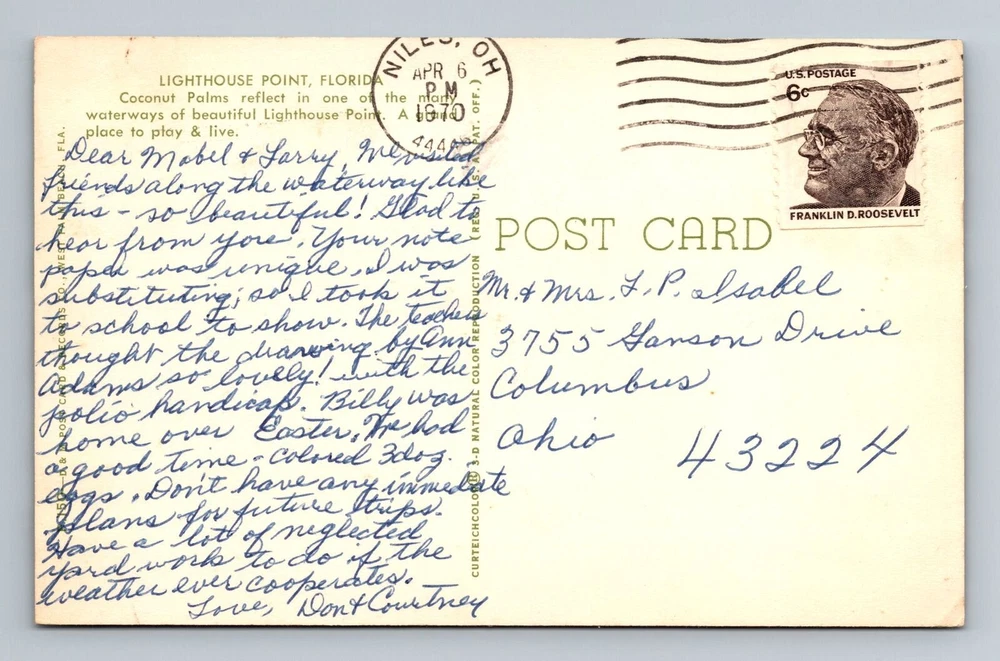 LIGHTHOUSE POINT, FLORIDA
Coconut Palms reflect in one of the many
waterways of beautiful Lighthouse Point. A grand
place to play & live.
NILES, OH
APR 6
PM
1970
U.S. POSTAGE
6c
FRANKLIN D. ROOSEVELT
Dear Mabel & Larry, We visited
friends along the waterway like
this - so beautiful! Glad to
hear from you. Your note
paper was unique. I was
substituting; so I took it
to school to show. The teachers
thought the drawing by Ann
Adams so lovely! with the
polio handicap. Billy was
home over Easter. We had
a good time - colored 3 doz.
eggs. Don't have any immediate
plans for future trips.
Have a lot of neglected
yard work to do if the
weather ever cooperates.
Love, Don & Courtney
POST CARD
Mr. & Mrs. L. P. Isabel
3755 Ganson Drive
Columbus
Ohio 43224
CURTEICHCOLOR® 3-D NATURAL COLOR REPRODUCTION (REG. U.S.A. PAT. OFF.)